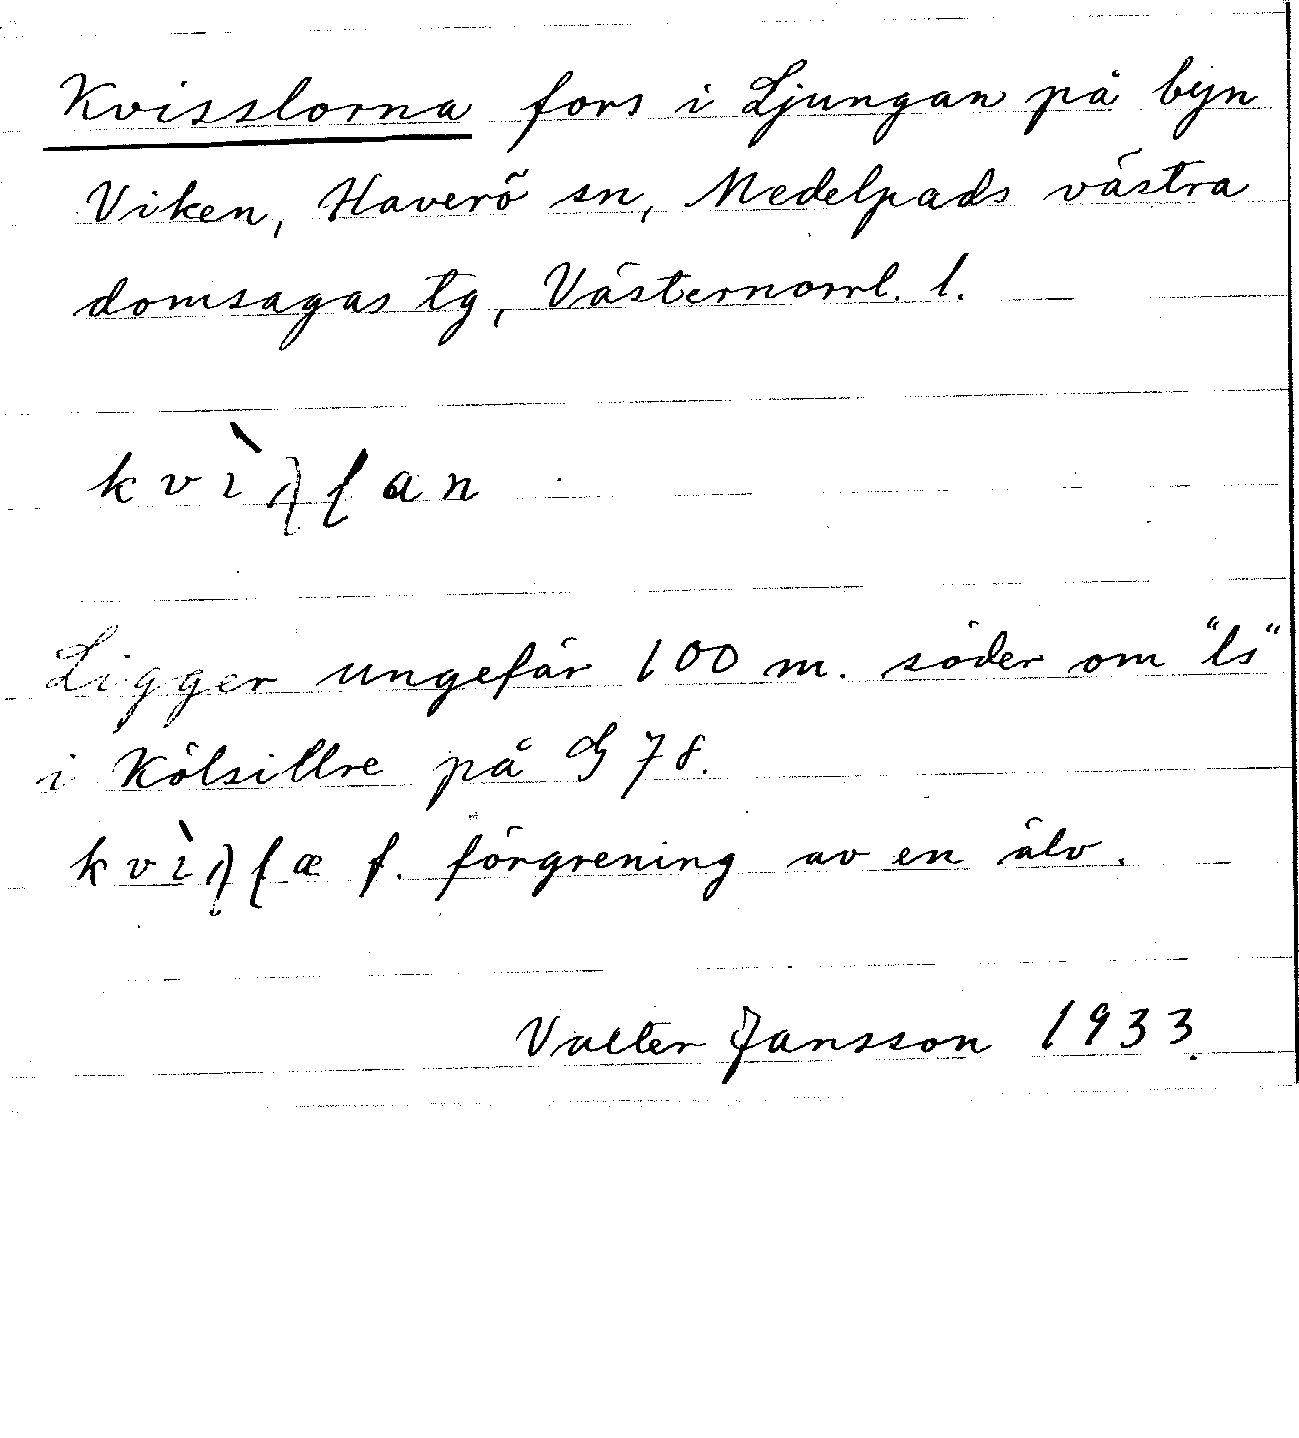 Kvisslorna fors i Ljungan på byn
Viken, Haverö sn, Medelpads västra
domsagas tg, Västernorrl. l.
kvìʃʃan
Ligger ungefär 100 m. söder om "ls"
i Kölsillre på G 78.
kvìʃʃæ f. förgrening av en älv.
Valter Jansson 1933.